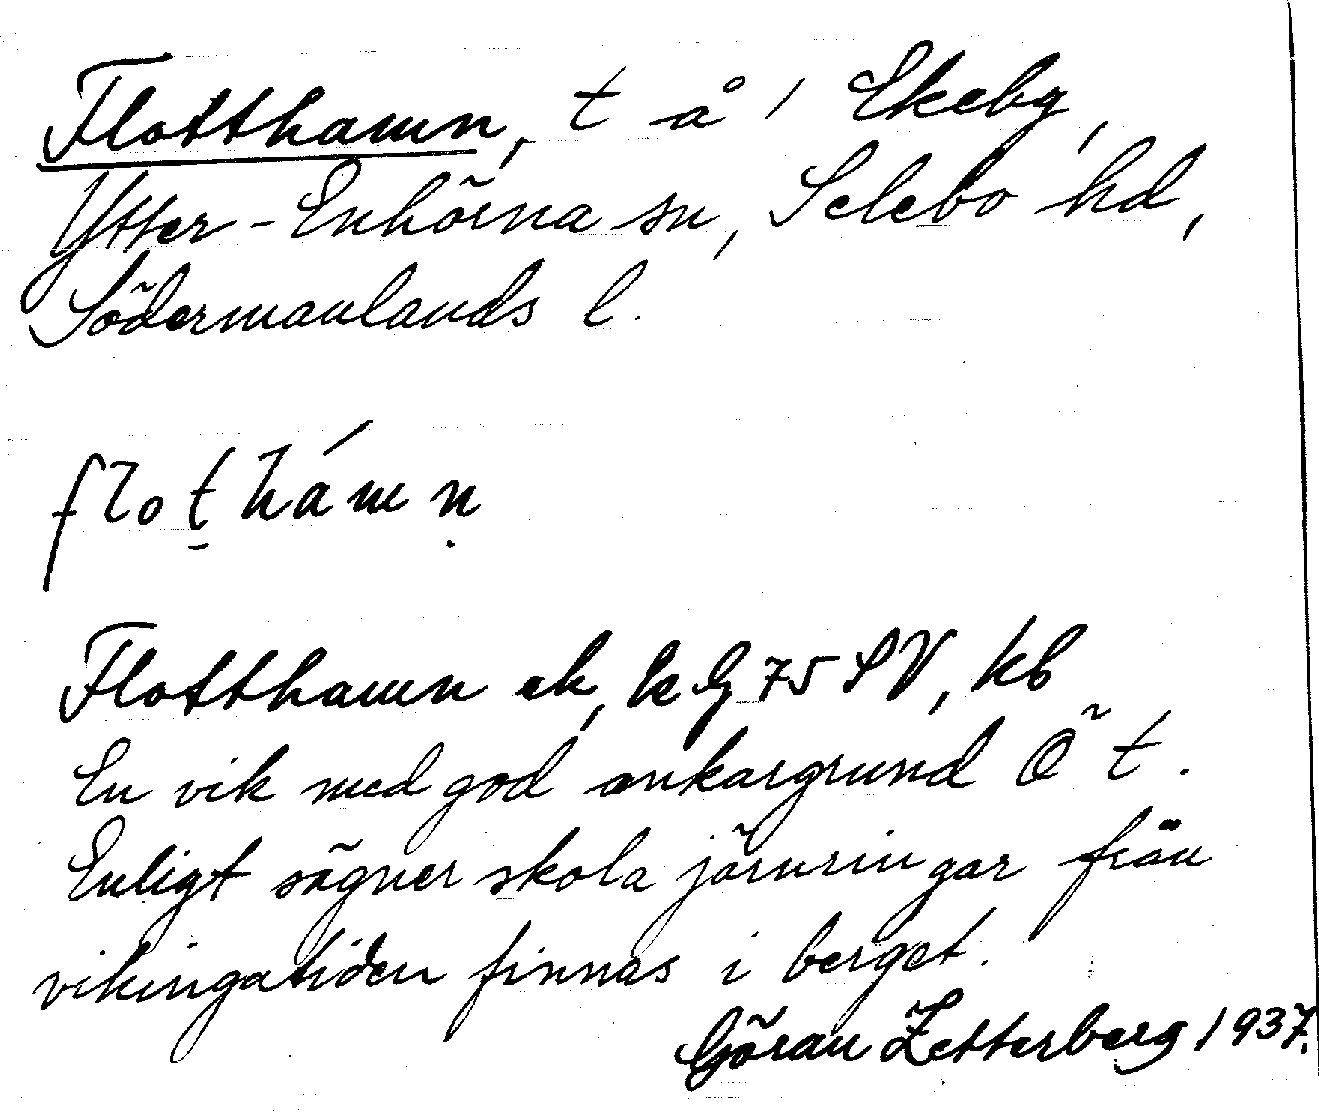 Flotthamn, t å i Ekeby,
Ytter-Enhörna sn, Selebo hd,
Södermanlands l.
flot̠hámṇ
Flotthamn ek, 75 SV, kb
En vik med god ankargrund Ö t.
Enligt sägner skola järnringar från
vikingatiden finnas i berget.
Göran Zetterberg 1937.